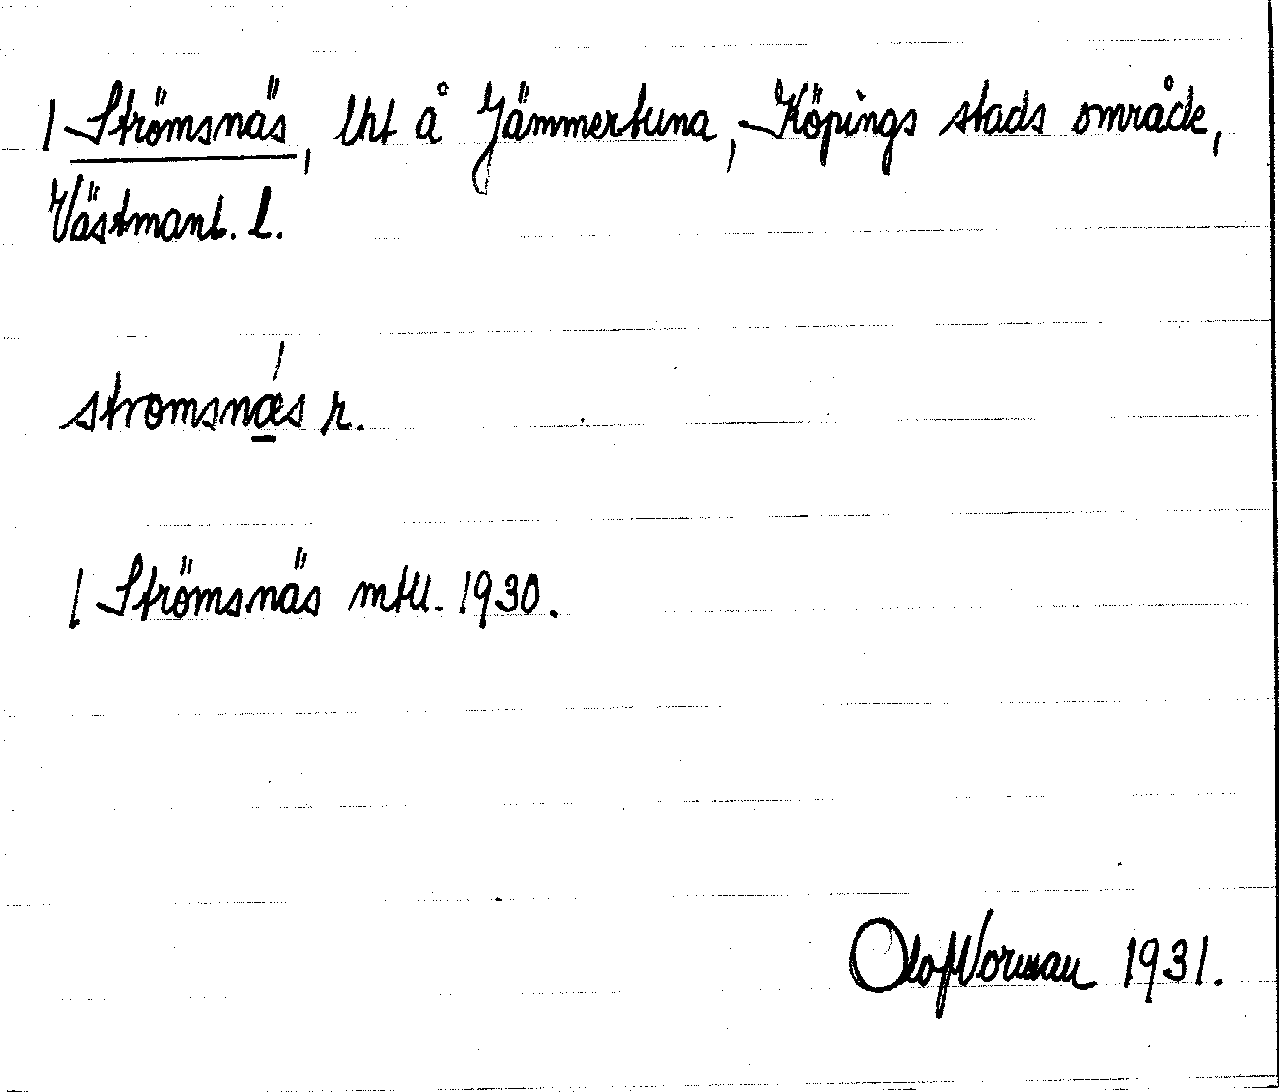 | Strömsnäs, lht å Jämmertuna, Köpings stads område,
Västmanl. l.
stromsnǽs r.
| Strömsnäs mtll. 1930.
Olof Norman 1931.